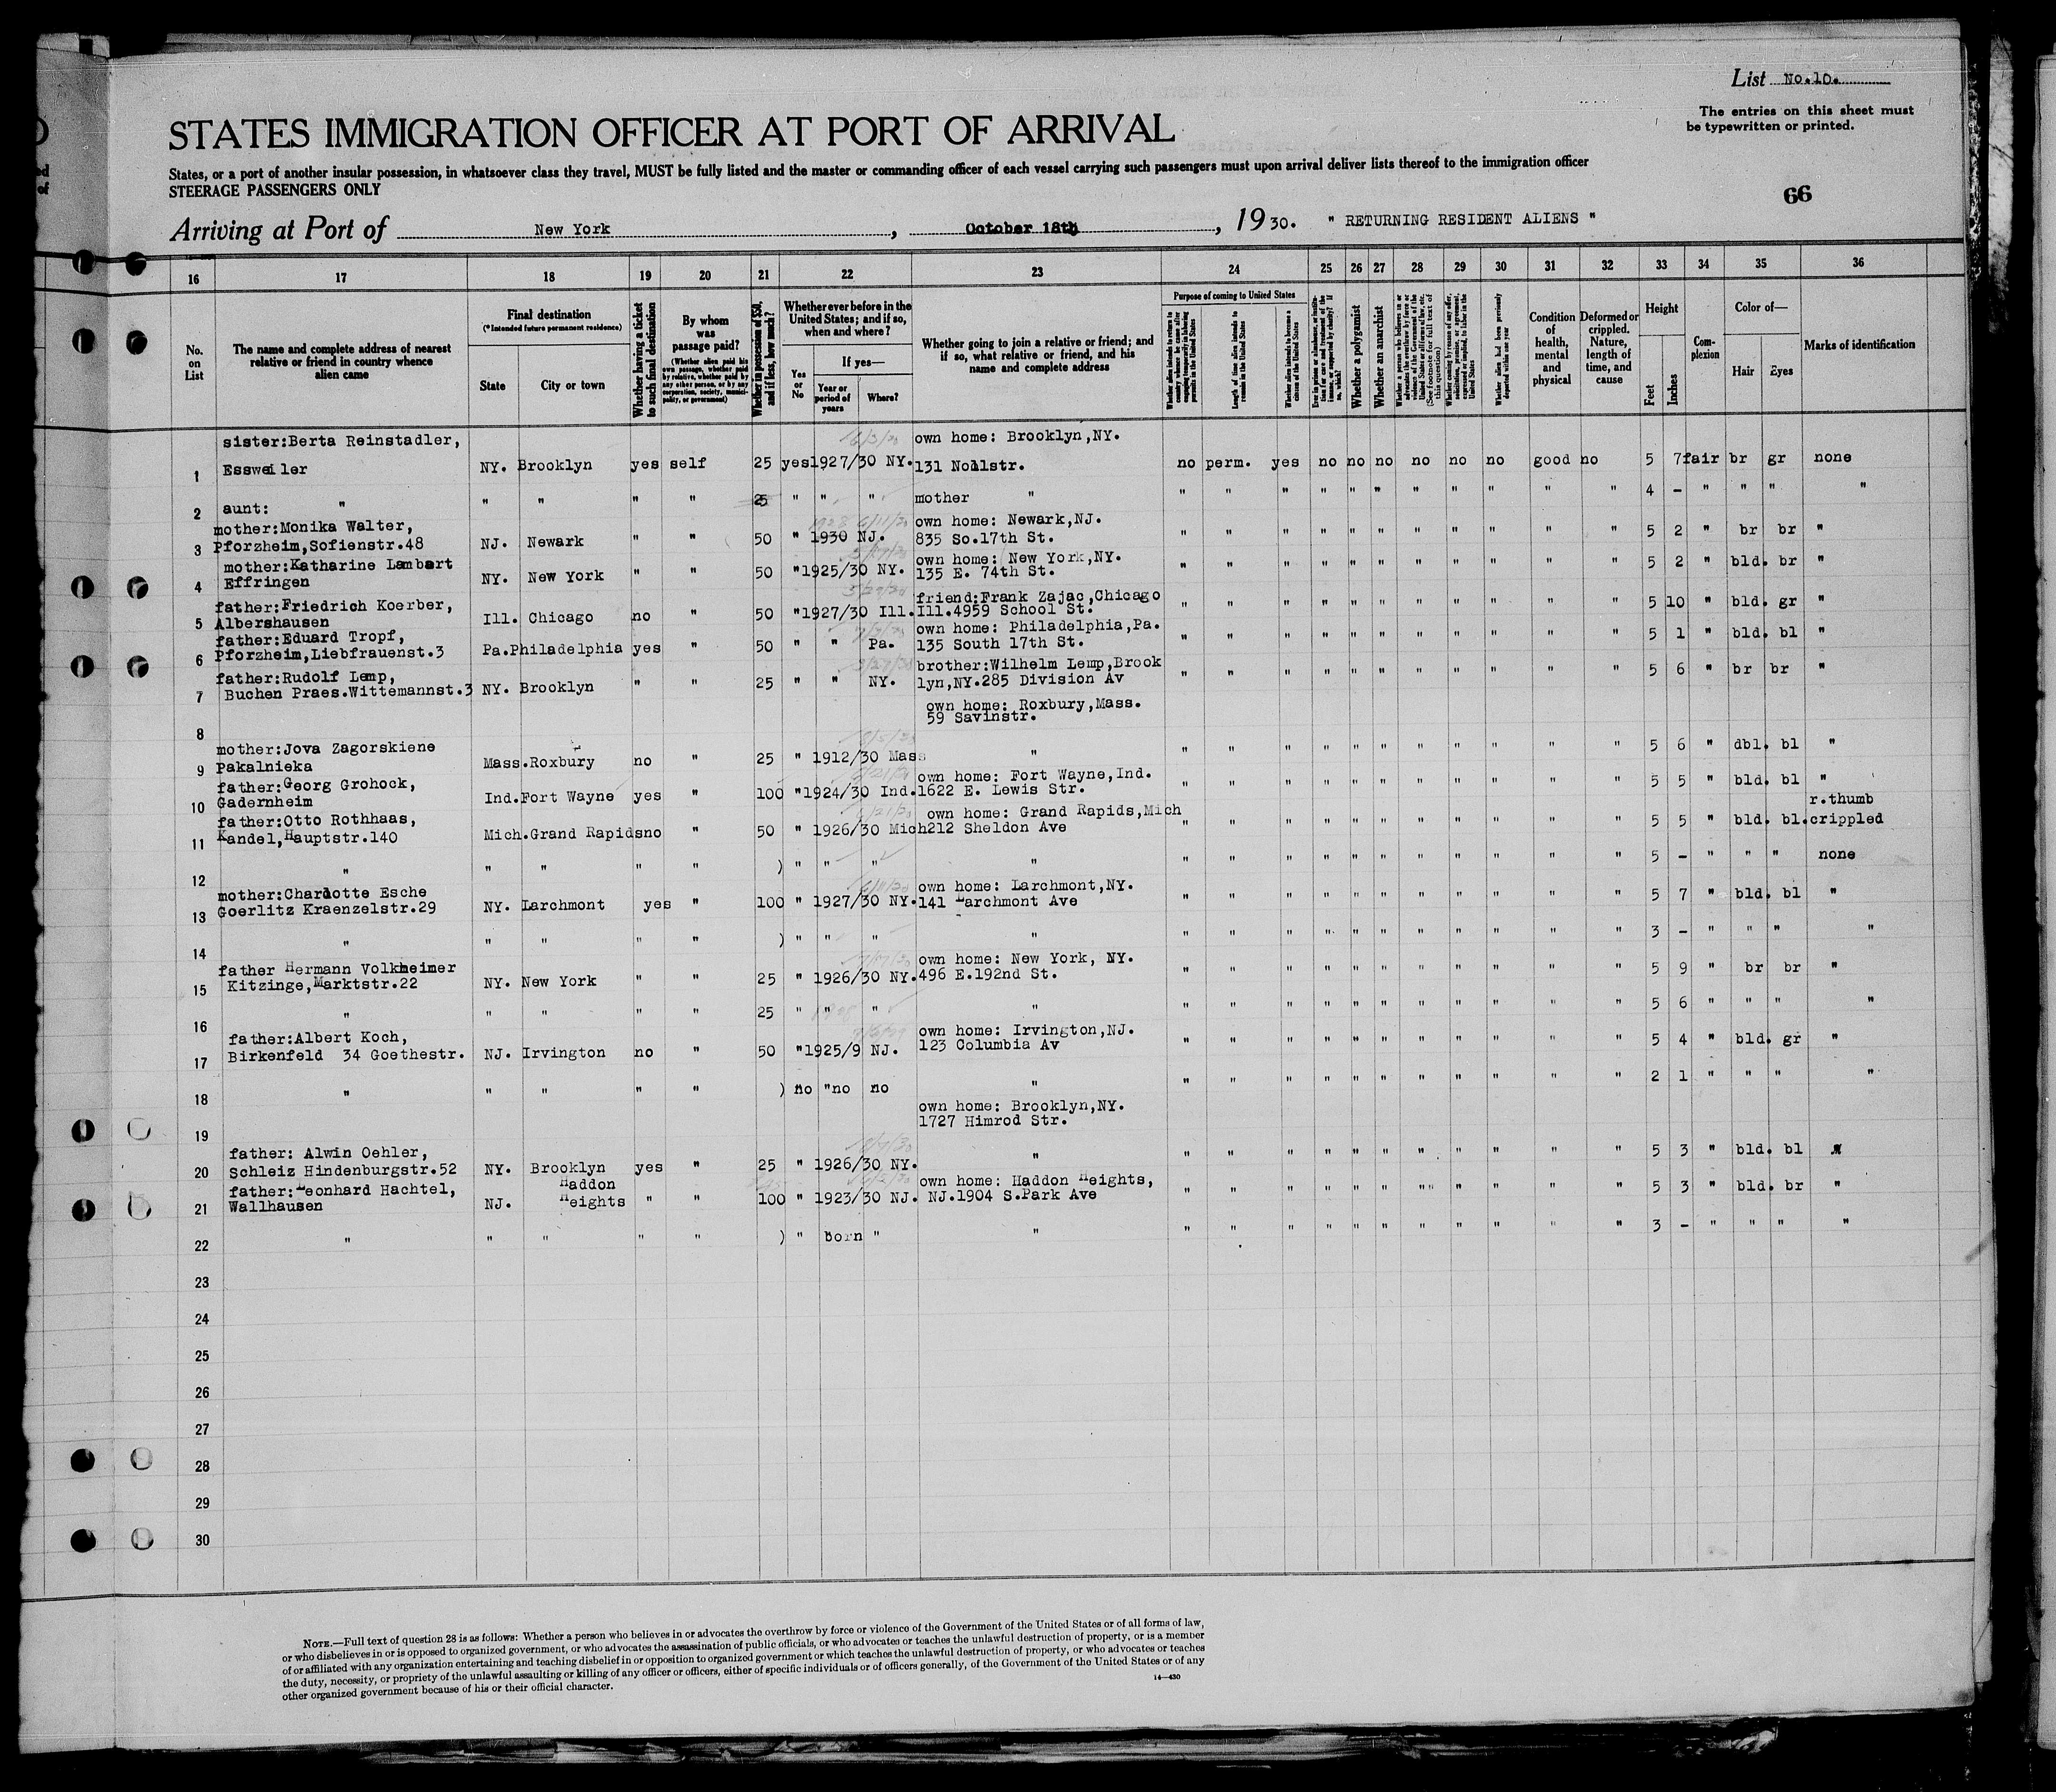 List No.10.
The entries on this sheet must
be typewritten or printed.
STATES IMMIGRATION OFFICER AT PORT OF ARRIVAL
States, or a port of another insular possession, in whatsoever class they travel, MUST be fully listed and the master or commanding officer of each vessel carrying such passengers must upon arrival deliver lists thereof to the immigration officer
STEERAGE PASSENGERS ONLY
66
Arriving at Port of New York, October 18th, 1930. " RETURNING RESIDENT ALIENS "
16 17 18 19 20 21 22 23 24 25 26 27 28 29 30 31 32 33 34 35 36
No. on List
The name and complete address of nearest relative or friend in country whence alien came
Final destination
(*Intended future permanent residence)
State
City or town
Whether having a ticket to such final destination
By whom was passage paid?
(Whether alien paid his own passage, whether paid by relative, whether paid by any other person, or by any corporation, society, municipality, or government)
Whether in possession of $50, and if less, how much?
Whether ever before in the United States; and if so, when and where?
Yes or No
If yes—
Year or period of years
Where?
Whether going to join a relative or friend; and if so, what relative or friend, and his name and complete address
Purpose of coming to United States
Length of time alien intends to remain in the United States
Whether alien intends to become a citizen of the United States
Whether a polygamist
Whether an anarchist
Condition of health, mental and physical
Deformed or crippled. Nature, length of time, and cause
Height
Feet
Inches
Complexion
Color of—
Hair
Eyes
Marks of identification
sister:Berta Reinstadler, own home: Brooklyn,NY.
1 Essweiler NY. Brooklyn yes self 25 yes 1927/30 NY. 131 Nollstr. no perm. yes no no no no no no good no 5 7 fair br gr none
2 aunt: " " " " " 25 " " " mother " " " " " " " " " " " " 4 - " " " "
mother:Monika Walter, own home: Newark,NJ.
3 Pforzheim,Sofienstr.48 NJ. Newark " " 50 " 1930 NJ. 835 So.17th St. " " " " " " " " " " " 5 2 " br br "
mother:Katharine Lambart own home: New York,NY.
4 Effringen NY. New York " " 50 " 1925/30 NY. 135 E. 74th St. " " " " " " " " " " " 5 2 " bld. br "
father:Friedrich Koerber, friend:Frank Zajac,Chicago
5 Albershausen Ill. Chicago no " 50 " 1927/30 Ill. Ill.4959 School St. " " " " " " " " " " " 5 10 " bld. gr "
father:Eduard Tropf, own home: Philadelphia,Pa.
6 Pforzheim,Liebfrauenst.3 Pa. Philadelphia yes " 50 " " Pa. 135 South 17th St. " " " " " " " " " " " 5 1 " bld. bl "
father:Rudolf Lemp, brother:Wilhelm Lemp,Brook
7 Buchen Praes.Wittemannst.3 NY. Brooklyn " " 25 " " NY. lyn,NY.285 Division Av " " " " " " " " " " " 5 6 " br br "
own home: Roxbury,Mass.
8 59 Savinstr.
mother:Jova Zagorskiene
9 Pakalnieka Mass. Roxbury no " 25 " 1912/30 Mass " " " " " " " " " " " " 5 6 " dbl. bl "
father:Georg Grohock, own home: Fort Wayne,Ind.
10 Gadernheim Ind. Fort Wayne yes " 100 " 1924/30 Ind. 1622 E. Lewis Str. " " " " " " " " " " " 5 5 " bld. bl "
father:Otto Rothhaas, own home: Grand Rapids,Mich r.thumb
11 Kandel,Hauptstr.140 Mich. Grand Rapids no " 50 " 1926/30 Mich 212 Sheldon Ave " " " " " " " " " " " 5 5 " bld. bl. crippled
12 " " " " " ) " " " " " " " " " " " " " " " 5 - " " " none
mother:Chardotte Esche own home: Larchmont,NY.
13 Goerlitz Kraenzelstr.29 NY. Larchmont yes " 100 " 1927/30 NY. 141 Larchmont Ave " " " " " " " " " " " 5 7 " bld. bl "
14 " " " " " ) " " " " " " " " " " " " " " " 3 - " " " "
father Hermann Volkheimer own home: New York, NY.
15 Kitzinge,Marktstr.22 NY. New York " " 25 " 1926/30 NY. 496 E.192nd St. " " " " " " " " " " " 5 9 " br br "
16 " " " " " 25 " " " " " " " " " " " " " " " 5 6 " " " "
father:Albert Koch, own home: Irvington,NJ.
17 Birkenfeld 34 Goethestr. NJ. Irvington no " 50 " 1925/9 NJ. 123 Columbia Av " " " " " " " " " " " 5 4 " bld. gr "
18 " " " " " ) no "no no " " " " " " " " " " " " 2 1 " " " "
own home: Brooklyn,NY.
19 1727 Himrod Str.
father: Alwin Oehler,
20 Schleiz Hindenburgstr.52 NY. Brooklyn yes " 25 " 1926/30 NY. " " " " " " " " " " " " 5 3 " bld. bl "
father:Leonhard Hachtel, Haddon own home: Haddon Heights,
21 Wallhausen NJ. Heights " " 100 " 1923/30 NJ. NJ.1904 S.Park Ave " " " " " " " " " " " 5 3 " bld. br "
22 " " " " " ) " born " " " " " " " " " " " " " 3 - " " " "
23
24
25
26
27
28
29
30
NOTE.—Full text of question 28 is as follows: Whether a person who believes in or advocates the overthrow by force or violence of the Government of the United States or of all forms of law,
or who disbelieves in or is opposed to organized government, or who advocates the assassination of public officials, or who advocates or teaches the unlawful destruction of property, or is a member
of or affiliated with any organization entertaining and teaching disbelief in or opposition to organized government or which teaches the unlawful destruction of property, or who advocates or teaches
the duty, necessity, or propriety of the unlawful assaulting or killing of any officer or officers, either of specific individuals or of officers generally, of the Government of the United States or of any
other organized government because of his or their official character.
14—430